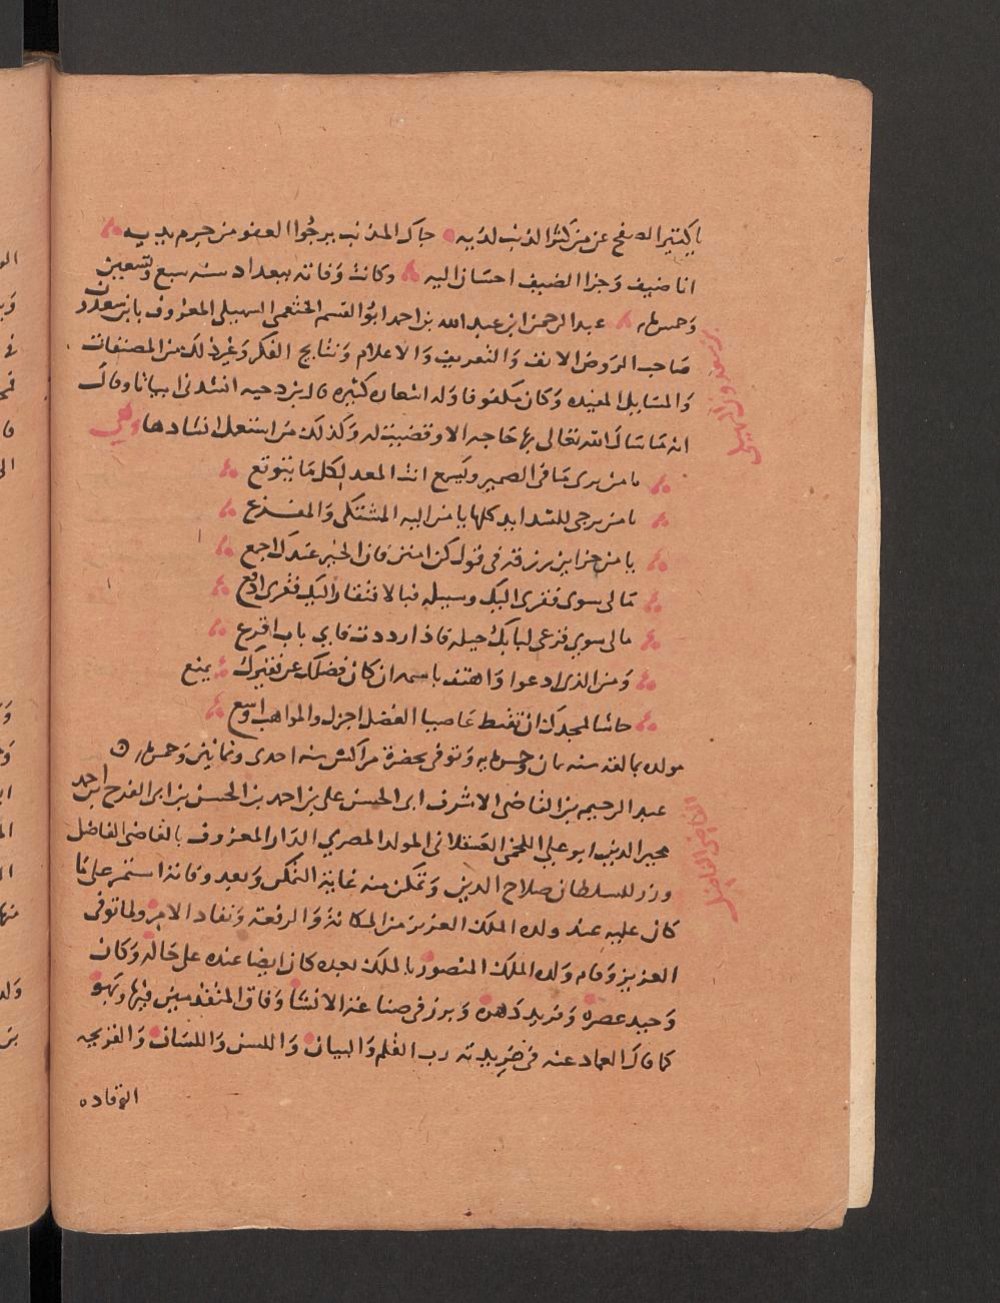 يا كثير الصفح عن من كثر الذنب لديه جاك المذنب يرجوا العفو من جرم يديه
انا ضيف وجزا الضيف احسان اليه وكانت وفاته ببغداد سنه سبع وتسعين
وخمسمايه عبد الرحمن ابن عبد الله بن احمد ابو القسم الخثعمى السهيلى المعروف بابن سعدون
صاحب الروض الانف والتعريف والاعلام ونتايج الفكر وغير ذلك من المصنفات
والمسايل المفيده وكان مكفوفا وله اشعار كثيره قال بن دحيه انشدنى ابياتا وقال
انه ما سال الله تعالى بها حاجه الا وقضيت له وكذلك من استعمل انشادها وهي
يا من يرى ما فى الضمير ويسمع انت المعد لكل ما يتوقع
يا من يرجى للشدايد كلها يا من اليه المشتكى والمفزع
يا من خزاين رزقه فى قول كن امنن فان الخير عندك اجمع
مالى سوى فقرى اليك وسيله فبالافتقار اليك فقرى ادفع
مالى سوي قرعى لبابك حيله فاذا رددت فاي باب اقرع
ومن الذى ادعوا واهتف باسمه ان كان فضلك عن فقيرك يمنع
حاشا لمجدك ان تقنط عاصيا الفضل اجزل والمواهب اوسع
مولده بمالقه سنه ثمان وخمسمايه وتوفى بحضرة مراكش سنه احدى وثمانين وخمسمايه
عبد الرحيم بن القاضى الاشرف ابى الحسن على بن احمد بن الحسن بن ابى الفرج ابن احمد
مجير الدين ابو علي اللخمى العسقلانى المولد المصري الدار المعروف بالقاضى الفاضل
وزر للسلطان صلاح الدين وتمكن منه غاية التمكن وبعد وفاته استمر على ما
كان عليه عند ولده الملك العزيز من المكانة والرفعة ونفاد الامر ولما توفى
العزيز وقام ولده الملك المنصور بالملك بعده كان ايضا عنده على حاله وكان
وحيد عصره وفريد دهره وبرز فى صناعة الانشا وفاق المتقدمين فيها وهو
كما قال العماد عنه فى خريدته رب القلم والبيان واللسن واللسان والقريحه
الوقاده
بن سعدون السهيلى
القاضى الفاضل